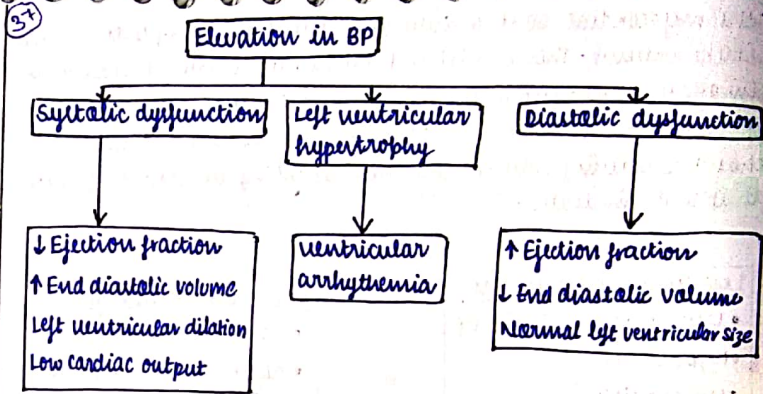 37
Elevation in BP
Systolic dysfunction
Left ventricular
hypertrophy
Diastolic dysfunction
↓ Ejection fraction
↑ End diastolic volume
Left ventricular dilation
Low cardiac output
ventricular
arrhythemia
↑ Ejection fraction
↓ End diastolic volume
Normal left ventricular size